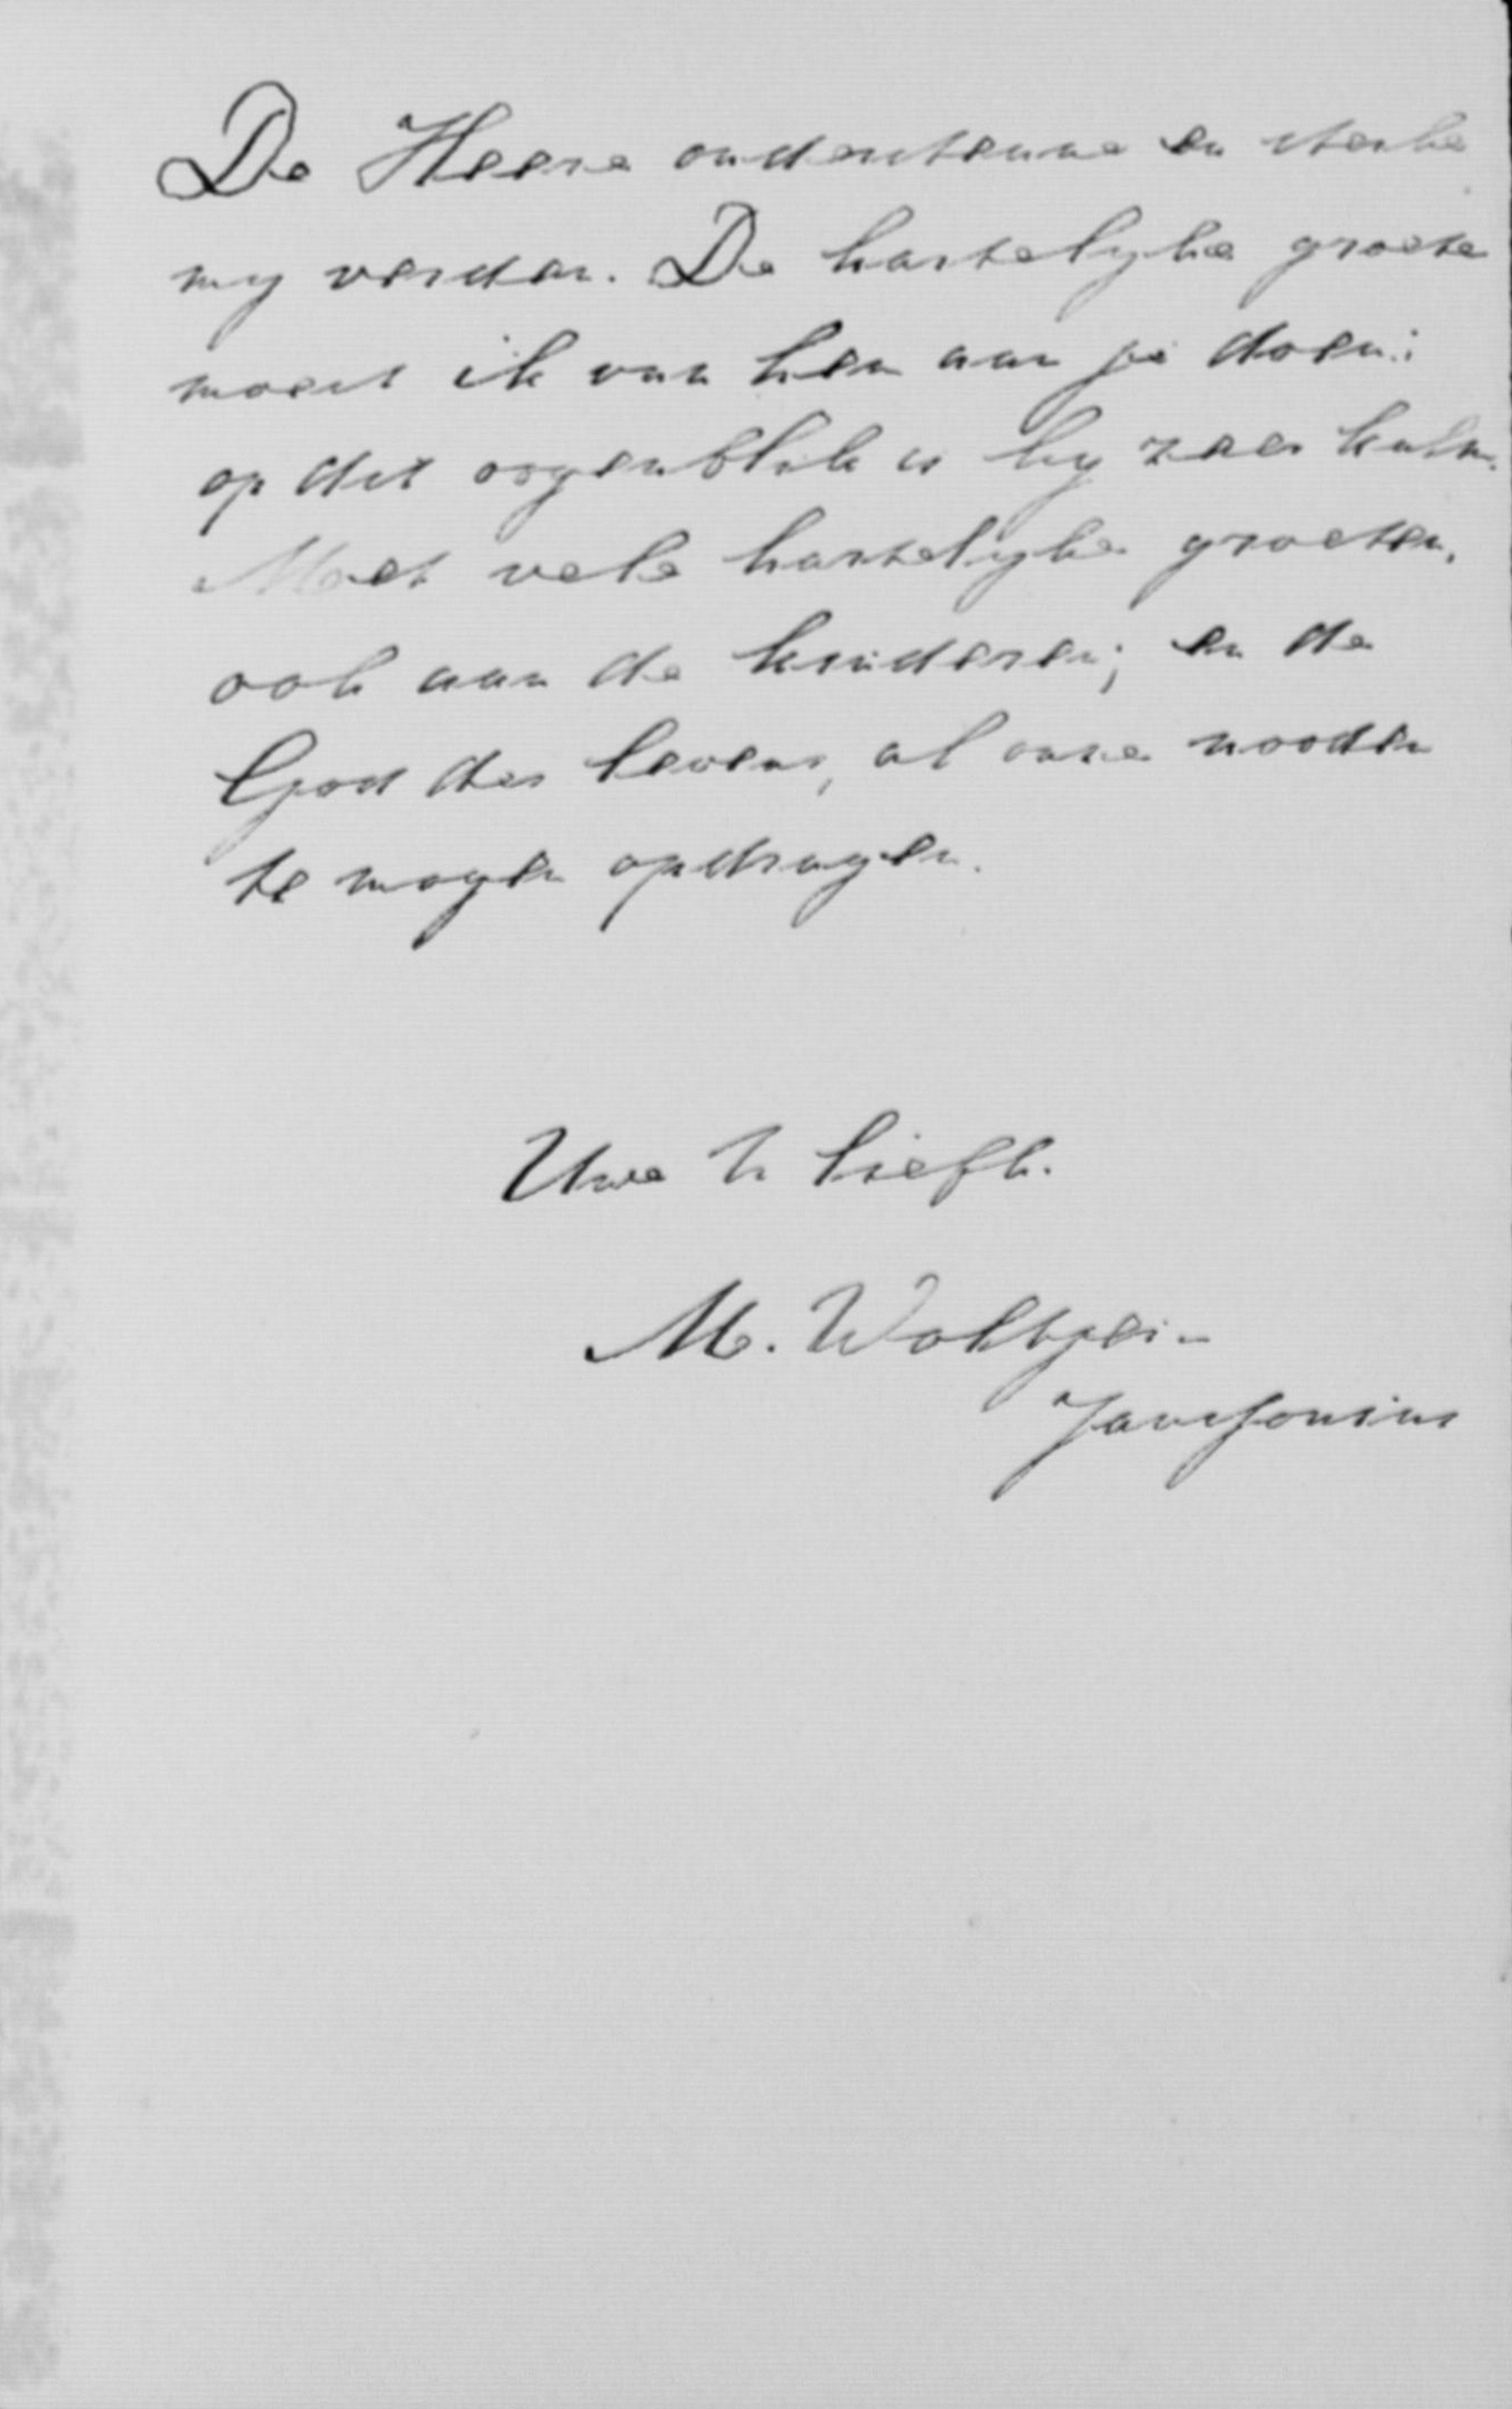 De Heere ondersteune en sterke
my verder. De hartelyke groete
moest ik van hem aan je doen:
op dit oogenblik is hy zeer kalm.
Met vele hartelyke groeten,
ook aan de kinderen; en de
God des levens, al onze nooden
te mogen opdragen.
Uwe h liefh.
M. Woltjer-
Jansonius